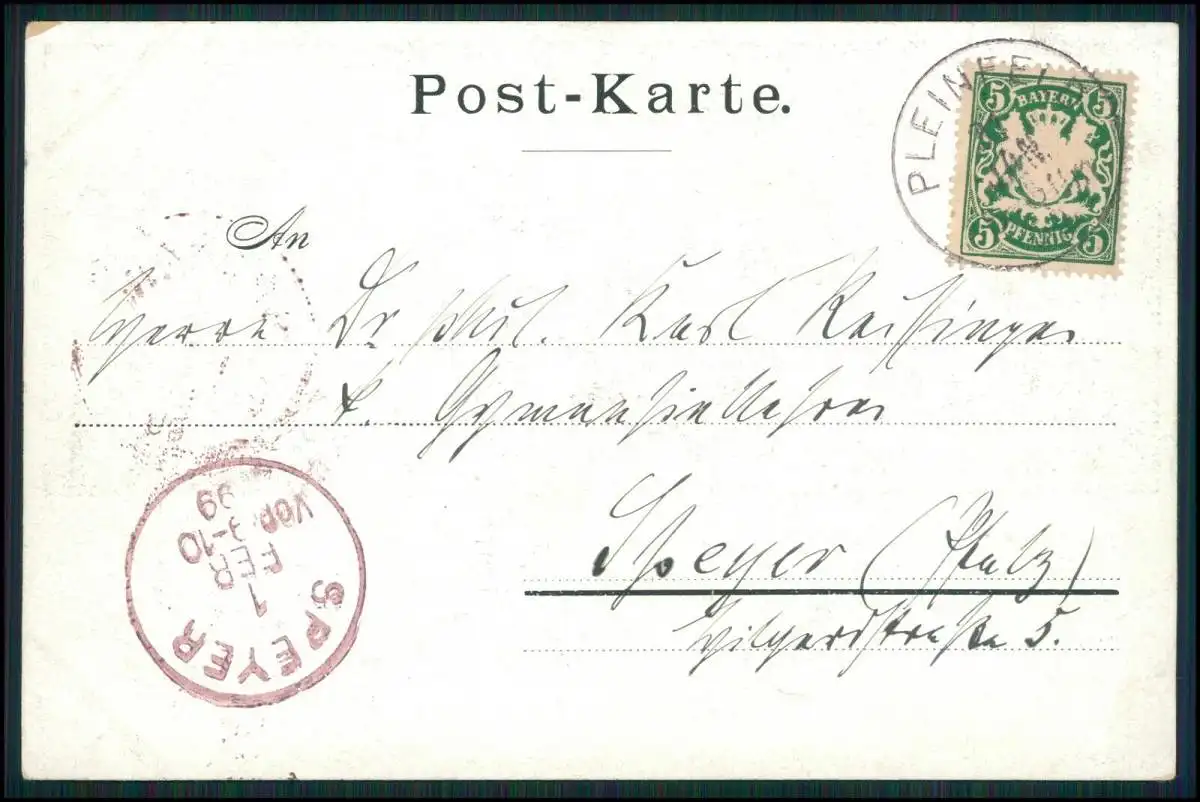 Post-Karte.
PLEINFELD
5 BAYERN 5
5 PFENNIG 5
An
Herrn Dr phil. Karl Reissinger
k. Gymnasiallehrer
Speyer (Pfalz)
Hilgardstraße 5.
SPEYER
1
FEB
9-10
VOR
99